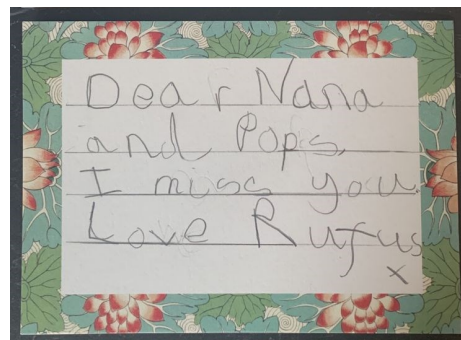 Dear Nana
and Pops,
I miss you.
Love Rufus
x